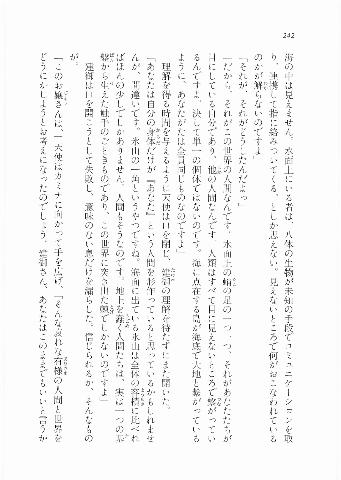 242
海の中は見えません。水面上にいる者は、八体の生物が未知の手段でコミュニケーションを取
り、連携して指に絡みついてくる、としか思えない。見えないところで何がおこなわれている
のかが解らないのですよ」
「それが、それがどうしたんだよっ」
「だから、それがこの世界の人間なんです。水面上の蛸の足の一つ一つ、それがあなたたちが
目にしている自分であり、他の人間なんです。人類はすべて目に見えないところで繋がってい
るんですよ。決して単一の個体ではないのです。海に点在する島が海底で大地と繋がっている
ように、あなたがたは全員同じものなのですよ」
理解を得る時間を与えるように天使は口を閉じ、建御の理解を待たずにまた開いた。
「あなたは自分の身体だけが『あなた』という人間を形作っていると思っているかもしれませ
んが、間違いです。氷山の一角というやつですね。海面に出ている氷山は全体の容積に比べれ
ばほんの少しでしかありません。人間もそうなのです。地上を蠢く人間たちは、実は一つの基
盤から生えた触手のごときものであり、この世界に突き出た顔でしかないのですよ」
建御は口を開こうとして失敗し、意味のない息だけを漏らした。信じられるか、そんなもの
が。
「このお嬢さんは、」天使はカミナに向かって手を広げ、「そんな哀れな有様の人間と世界を
どうにかしようとお考えになったのでしょう。建御さん、あなたはこのままでもいいと言うか